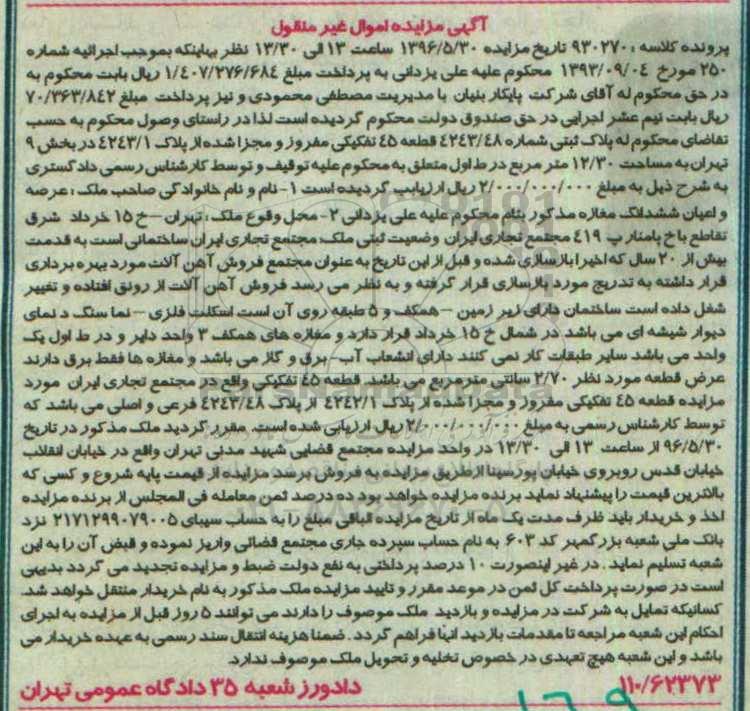 آگهی مزایده اموال غیر منقول
پرونده کلاسه : ۹۳۰۲۷۰ تاریخ مزایده ۱۳۹۶/۵/۳۰ ساعت ۱۳ الی ۱۳/۳۰ نظر بهاینکه بموجب اجرائیه شماره
۲۵۰ مورخ ۱۳۹۳/۰۹/۰۴ محکوم علیه علی یزدانی به پرداخت مبلغ ۱/۴۰۷/۲۷۶/۶۸۴ ریال بابت محکوم به
در حق محکوم له آقای شرکت پایکار بنیان با مدیریت مصطفی محمودی و نیز پرداخت مبلغ ۷۰/۳۶۳/۸۴۲
ریال بابت نیم عشر اجرایی در حق صندوق دولت محکوم گردیده است لذا در راستای وصول محکوم به حسب
تقاضای محکوم له پلاک ثبتی شماره ۴۲۴۳/۴۸ قطعه ٤٥ تفکیکی مفروز و مجزا شده از پلاک ۴۲۴۳/۱ در بخش ۹
تهران به مساحت ۱۲/۳۰ متر مربع در ط اول متعلق به محکوم علیه توقیف و توسط کارشناس رسمی دادگستری
به شرح ذیل به مبلغ ۲/۰۰۰/۰۰۰/۰۰۰ ریال ارزیابی گردیده است ۱- نام و نام خانوادگی صاحب ملک : عرصه
و اعیان ششدانگ مغازه مذکور بنام محکوم علیه علی یزدانی ۲- محل وقوع ملک : تهران –خ ۱۵ خرداد شرق
تقاطع با خ پامنار پ ٤١٩ مجتمع تجاری ایران وضعیت ثبتی ملک: مجتمع تجاری ایران ساختمانی است به قدمت
بیش از ۲۰ سال که اخیرا بازسازی شده و قبل از این تاریخ به عنوان مجتمع فروش آهن آلات مورد بهره برداری
قرار داشته به تدریج مورد بازسازی قرار گرفته و به نظر می رسد فروش آهن آلات از رونق افتاده و تغییر
شغل داده است ساختمان دارای زیر زمین – همکف و ۵ طبقه روی آن است اسکلت فلزی – نما سنگ د نمای
دیوار شیشه ای می باشد در شمال خ ۱۵ خرداد قرار دارد و مغازه های همکف ۳ واحد دایر و در ط اول یک
واحد می باشد سایر طبقات کار نمی کنند دارای انشعاب آب- برق و گاز می باشد و مغازه ها فقط برق دارند
عرض قطعه مورد نظر ۲/۷۰ سانتی مترمربع می باشد. قطعه ٤٥ تفکیکی واقع در مجتمع تجاری ایران مورد
مزایده قطعه ٤٥ تفکیکی مفروز و مجزا شده از پلاک ۴۲۴۲/۱ از پلاک ۴۲۴۳/۴۸ فرعی و اصلی می باشد که
توسط کارشناس رسمی به مبلغ ۲/۰۰۰/۰۰۰/۰۰۰ ریال ارزیابی شده است. مقرر گردید ملک مذکور در تاریخ
۹۶/۵/۳۰ از ساعت ۱۳ الی ۱۳/۳۰ در واحد مزایده مجتمع قضایی شهید مدنی تهران واقع در خیابان انقلاب
خیابان قدس روبروی خیابان پورسینا ازطریق مزایده به فروش برسد مزایده از قیمت پایه شروع و کسی که
بالاترین قیمت را پیشنهاد نماید برنده مزایده خواهد بود ده درصد ثمن معامله فی المجلس از برنده مزایده
اخذ و خریدار باید ظرف مدت یک ماه از تاریخ مزایده الباقی مبلغ را به حساب سیبای ۲۱۷۱۲۹۹۰۷۹۰۰۵ نزد
بانک ملی شعبه بزرگمهر کد ۶۰۳ به نام حساب سپرده جاری مجتمع قضائی واریز نموده و قبض آن را به این
شعبه تسلیم نماید . در غیر اینصورت ۱۰ درصد پرداختی به نفع دولت ضبط و مزایده تجدید می گردد بدیهی
است در صورت پرداخت کل ثمن در موعد مقرر و تایید مزایده ملک مذکور به نام خریدار منتقل خواهد شد.
کسانیکه تمایل به شرکت در مزایده و بازدید ملک موصوف را دارند می توانند ۵ روز قبل از مزایده به اجرای
احکام این شعبه مراجعه تا مقدمات بازدید آنها فراهم گردد . ضمنا هزینه انتقال سند رسمی به عهده خریدار می
باشد و این شعبه هیچ تعهدی در خصوص تخلیه و تحویل ملک موصوف ندارد.
۱۱۰/۶۲۳۷۳ دادورز شعبه ۳۵ دادگاه عمومی تهران